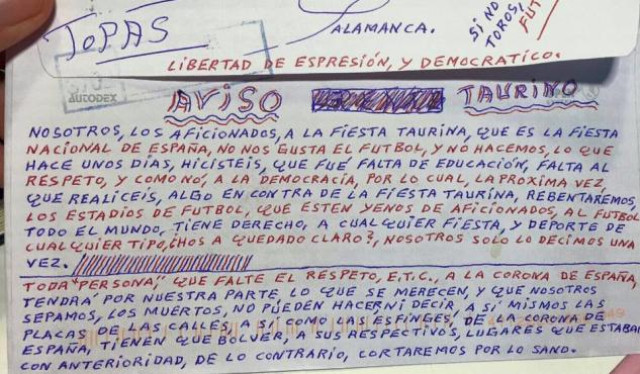 TOPAS
ALAMANCA.
SI NO
TOROS,
FUT
LIBERTAD DE ESPRESIÓN, Y DEMOCRATICO.
AUTODEX
AVISO TAURINO
NOSOTROS, LOS AFICIONADOS, A LA FIESTA TAURINA, QUE ES LA FIESTA
NACIONAL DE ESPAÑA, NO NOS GUSTA EL FUTBOL, Y NO HACEMOS, LO QUE
HACE UNOS DÍAS, HICISTEIS, QUE FUÉ FALTA DE EDUCACIÓN, FALTA AL
RESPETO, Y COMO NO, A LA DEMOCRACIA, POR LO CUAL, LA PROXIMA VEZ,
QUE REALICEIS, ALGO EN CONTRA DE LA FIESTA TAURINA, REBENTAREMOS,
LOS ESTADIOS DE FUTBOL, QUE ESTEN YENOS DE AFICIONADOS, AL FUTBOL
TODO EL MUNDO, TIENE DERECHO, A CUALQUIER FIESTA, Y DEPORTE DE
CUALQUIER TIPO, ¿HOS A QUEDADO CLARO?, NOSOTROS SOLO LO DECIMOS UNA
VEZ.
TODA "PERSONA", QUE FALTE EL RESPETO, E.T.C., A LA CORONA DE ESPAÑA,
TENDRÁ POR NUESTRA PARTE, LO QUE SE MERECEN, Y QUE NOSOTROS
SEPAMOS, LOS MUERTOS, NO PUEDEN HACER NI DECIR, A SÍ MISMOS LAS
PLACAS DE LAS CALLES, A SÍ COMO LAS ESFINGES, DE LA CORONA DE
ESPAÑA, TIENEN QUE BOLVER, A SUS RESPECTIVOS, LUGARES QUE ESTABAN
CON ANTERIORIDAD, DE LO CONTRARIO, CORTAREMOS POR LO SANO.